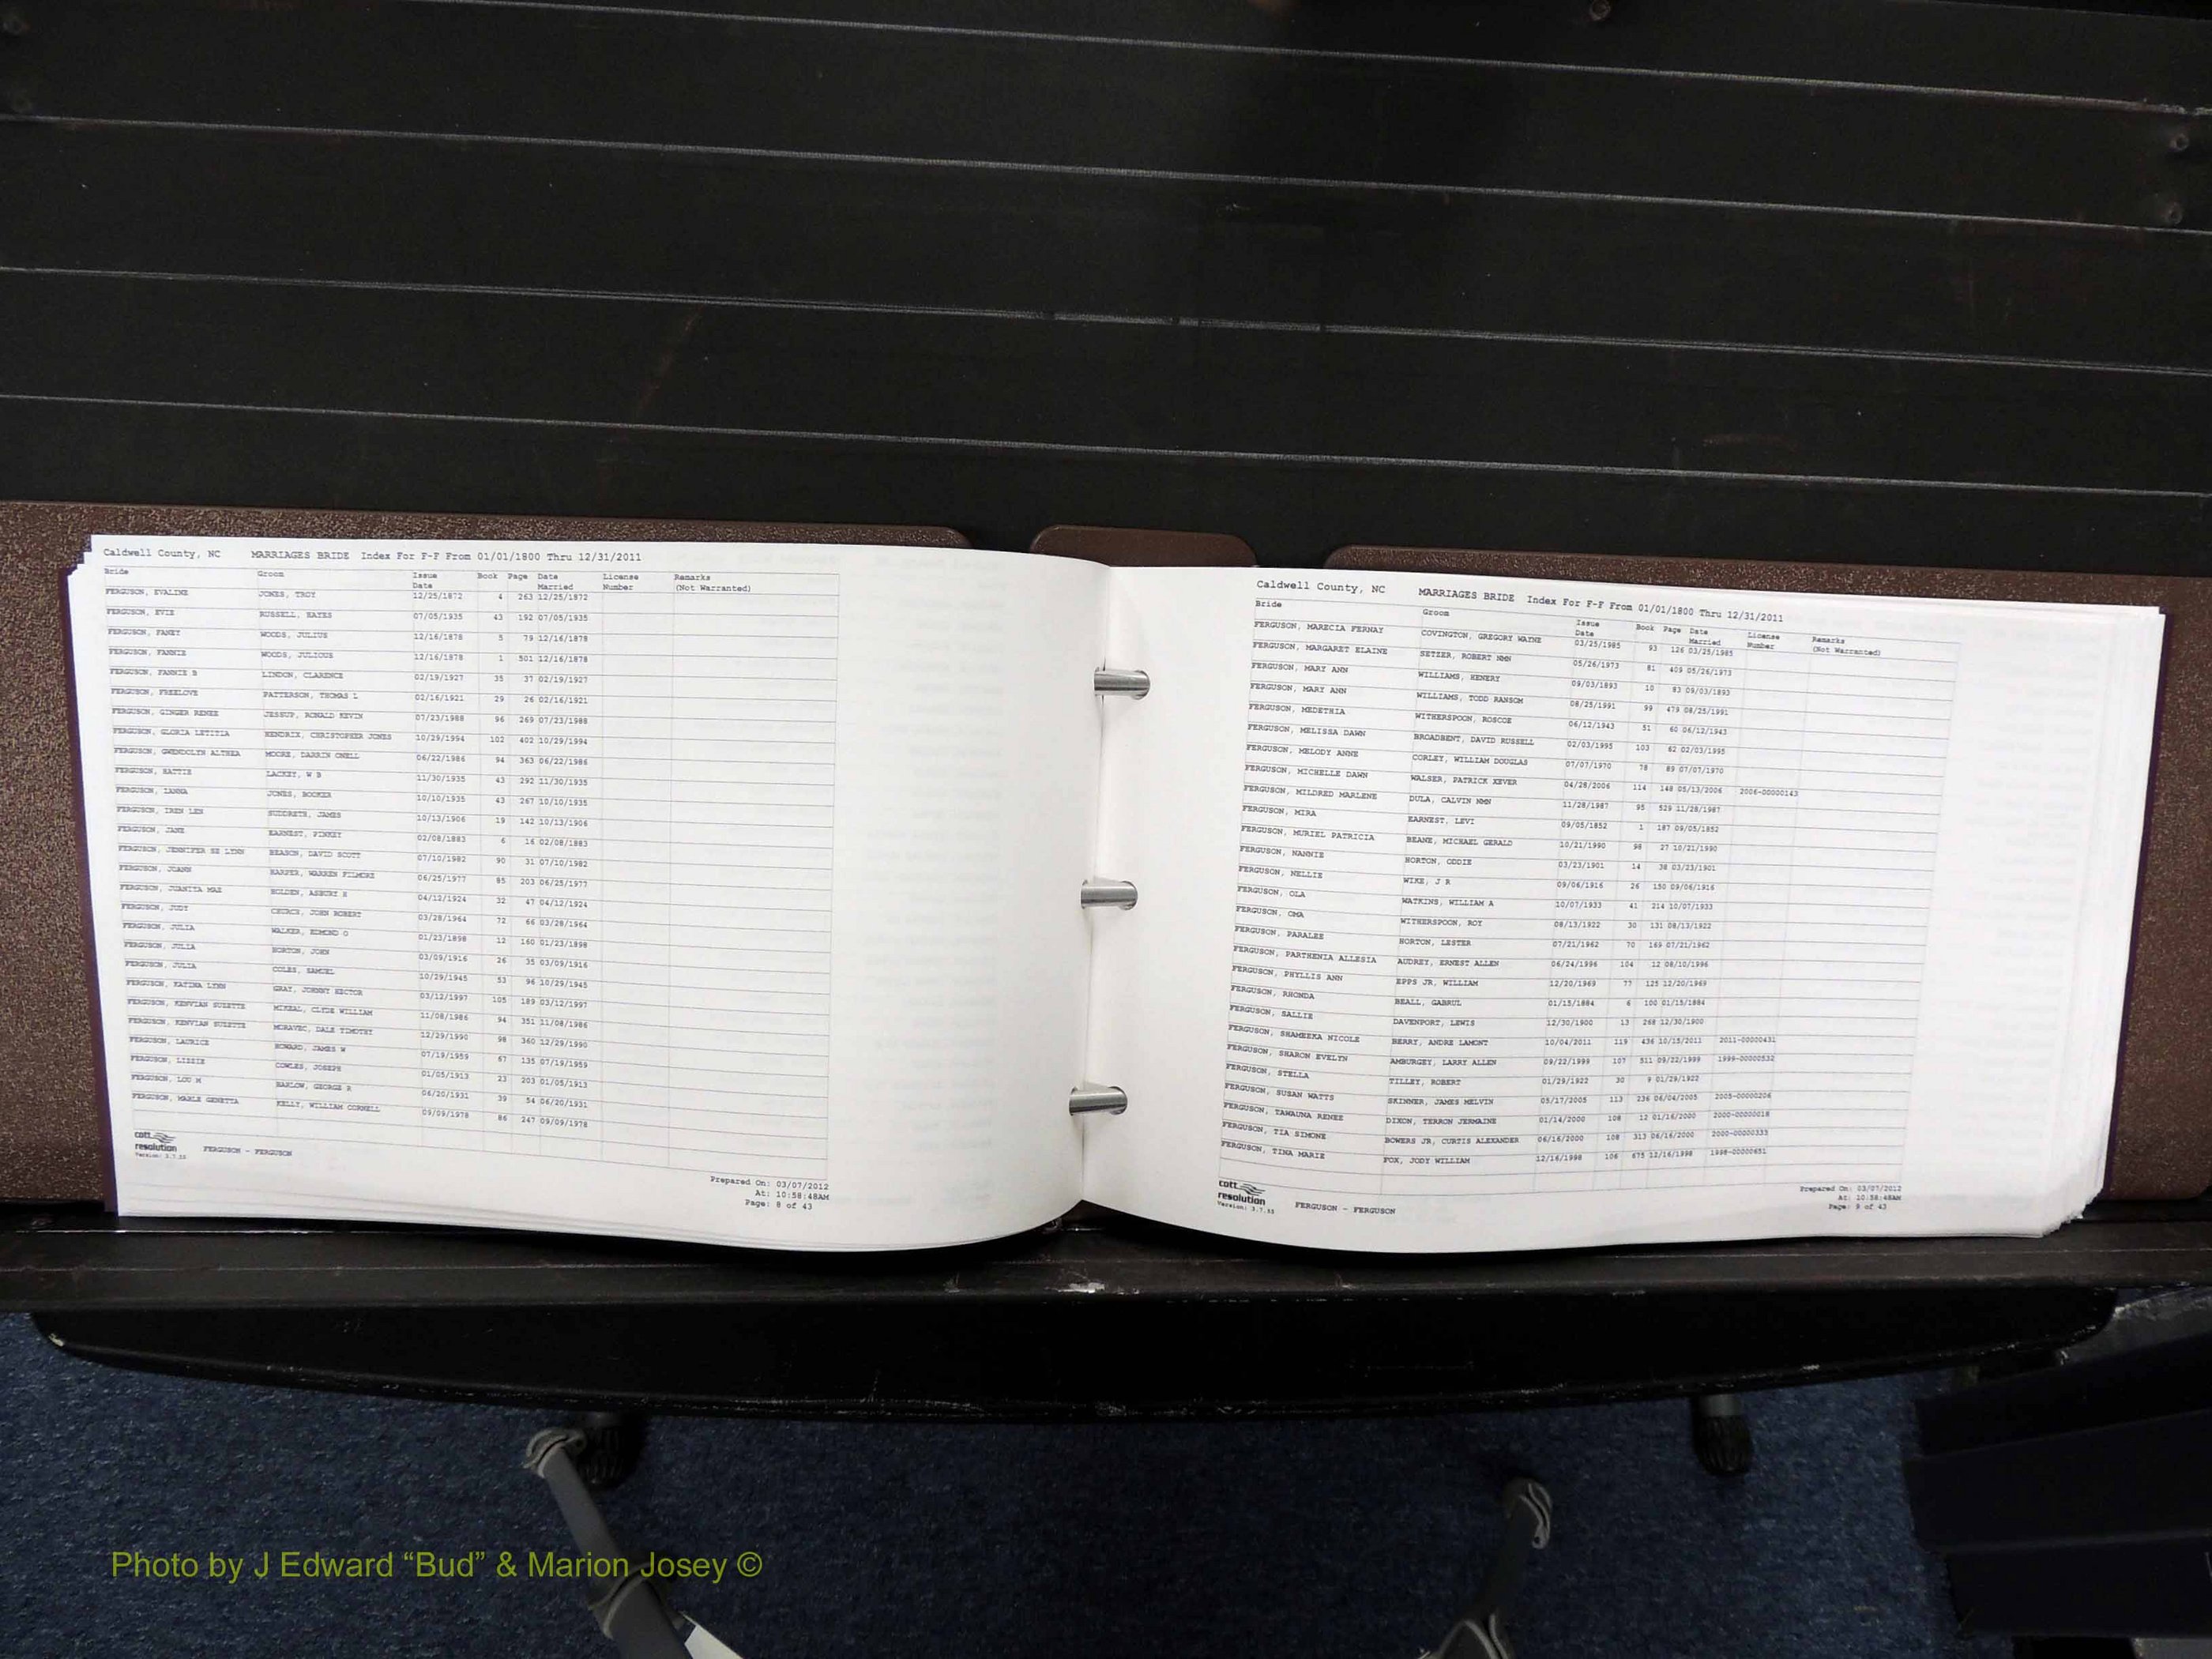 Caldwell County, NC MARRIAGES BRIDE Index For F-F From 01/01/1800 Thru 12/31/2011
Bride Groom Issue Date Book Page Date Married License Number Remarks (Not Warranted)
FERGUSON, EVALINE JONES, TROY 12/25/1872 4 263 12/25/1872
FERGUSON, EVIE RUSSELL, HAYES 07/05/1935 43 192 07/05/1935
FERGUSON, FANEY WOODS, JULIUS 12/16/1878 5 79 12/16/1878
FERGUSON, FANNIE WOODS, JULIOUS 12/16/1878 1 501 12/16/1878
FERGUSON, FANNIE B LINDON, CLARENCE 02/19/1927 35 37 02/19/1927
FERGUSON, FREELOVE PATTERSON, THOMAS L 02/16/1921 29 26 02/16/1921
FERGUSON, GINGER RENEE JESSUP, RONALD KEVIN 07/23/1988 96 269 07/23/1988
FERGUSON, GLORIA LETITIA HENDRIX, CHRISTOPHER JONES 10/29/1994 102 402 10/29/1994
FERGUSON, GWENDOLYN ALTHEA MOORE, DARRIN ONELL 06/22/1986 94 363 06/22/1986
FERGUSON, HATTIE LACKEY, W B 11/30/1935 43 292 11/30/1935
FERGUSON, IANNA JONES, BOOKER 10/10/1935 43 267 10/10/1935
FERGUSON, IREN LEN SUDDRETH, JAMES 10/13/1906 19 142 10/13/1906
FERGUSON, JANE EARNEST, PINKEY 02/08/1883 6 16 02/08/1883
FERGUSON, JENNIFER SE LYNN BEASON, DAVID SCOTT 07/10/1982 90 31 07/10/1982
FERGUSON, JOANN HARPER, WARREN FILMORE 06/25/1977 85 203 06/25/1977
FERGUSON, JUANITA MAE HOLDEN, ASBURY H 04/12/1924 32 47 04/12/1924
FERGUSON, JUDY CHURCH, JOHN ROBERT 03/28/1964 72 66 03/28/1964
FERGUSON, JULIA WALKER, EDMOND O 01/23/1898 12 160 01/23/1898
FERGUSON, JULIA HORTON, JOHN 03/09/1916 26 35 03/09/1916
FERGUSON, JULIA COLES, SAMUEL 10/29/1945 53 96 10/29/1945
FERGUSON, KATINA LYNN GRAY, JOHNNY HECTOR 03/12/1997 105 189 03/12/1997
FERGUSON, KENVIAN SUZETTE MIKEAL, CLYDE WILLIAM 11/08/1986 94 351 11/08/1986
FERGUSON, KENVIAN SUZETTE MORAVEC, DALE TIMOTHY 12/29/1990 98 360 12/29/1990
FERGUSON, LAURICE HOWARD, JAMES W 07/19/1959 67 135 07/19/1959
FERGUSON, LIZZIE COWLES, JOSEPH 01/05/1913 23 203 01/05/1913
FERGUSON, LOU M BARLOW, GEORGE R 06/20/1931 39 54 06/20/1931
FERGUSON, MARLE GENETTA KELLY, WILLIAM CORNELL 09/09/1978 86 247 09/09/1978
cott resolution
Version: 3.7.55
FERGUSON - FERGUSON
Prepared On: 03/07/2012
At: 10:58:48AM
Page: 8 of 43
Caldwell County, NC MARRIAGES BRIDE Index For F-F From 01/01/1800 Thru 12/31/2011
Bride Groom Issue Date Book Page Date Married License Number Remarks (Not Warranted)
FERGUSON, MARECIA FERNAY COVINGTON, GREGORY WAYNE 03/25/1985 93 126 03/25/1985
FERGUSON, MARGARET ELAINE SETZER, ROBERT NMN 05/26/1973 81 409 05/26/1973
FERGUSON, MARY ANN WILLIAMS, HENERY 09/03/1893 10 83 09/03/1893
FERGUSON, MARY ANN WILLIAMS, TODD RANSOM 08/25/1991 99 479 08/25/1991
FERGUSON, MEDETHIA WITHERSPOON, ROSCOE 06/12/1943 51 60 06/12/1943
FERGUSON, MELISSA DAWN BROADBENT, DAVID RUSSELL 02/03/1995 103 62 02/03/1995
FERGUSON, MELODY ANNE CORLEY, WILLIAM DOUGLAS 07/07/1970 78 89 07/07/1970
FERGUSON, MICHELLE DAWN WALSER, PATRICK XEVER 04/28/2006 114 148 05/13/2006 2006-00000143
FERGUSON, MILDRED MARLENE DULA, CALVIN NMN 11/28/1987 95 529 11/28/1987
FERGUSON, MIRA EARNEST, LEVI 09/05/1852 1 187 09/05/1852
FERGUSON, MURIEL PATRICIA BEANE, MICHAEL GERALD 10/21/1990 98 27 10/21/1990
FERGUSON, NANNIE HORTON, ODDIE 03/23/1901 14 38 03/23/1901
FERGUSON, NELLIE WIKE, J R 09/06/1916 26 150 09/06/1916
FERGUSON, OLA WATKINS, WILLIAM A 10/07/1933 41 214 10/07/1933
FERGUSON, OMA WITHERSPOON, ROY 08/13/1922 30 131 08/13/1922
FERGUSON, PARALEE HORTON, LESTER 07/21/1962 70 169 07/21/1962
FERGUSON, PARTHENIA ALLESIA AUDREY, ERNEST ALLEN 06/24/1996 104 12 08/10/1996
FERGUSON, PHYLLIS ANN EPPS JR, WILLIAM 12/20/1969 77 125 12/20/1969
FERGUSON, RHONDA BEALL, GABRUL 01/15/1884 6 100 01/15/1884
FERGUSON, SALLIE DAVENPORT, LEWIS 12/30/1900 13 268 12/30/1900
FERGUSON, SHAMEEKA NICOLE BERRY, ANDRE LAMONT 10/04/2011 119 436 10/15/2011 2011-00000431
FERGUSON, SHARON EVELYN AMBURGEY, LARRY ALLEN 09/22/1999 107 511 09/22/1999 1999-00000532
FERGUSON, STELLA TILLEY, ROBERT 01/29/1922 30 9 01/29/1922
FERGUSON, SUSAN WATTS SKINNER, JAMES MELVIN 05/17/2005 113 236 06/04/2005 2005-00000206
FERGUSON, TAWAUNA RENEE DIXON, TERRON JERMAINE 01/14/2000 108 12 01/16/2000 2000-00000018
FERGUSON, TIA SIMONE BOWERS JR, CURTIS ALEXANDER 06/16/2000 108 313 06/16/2000 2000-00000333
FERGUSON, TINA MARIE FOX, JODY WILLIAM 12/16/1998 106 675 12/16/1998 1998-00000651
cott resolution
Version: 3.7.55
FERGUSON - FERGUSON
Prepared On: 03/07/2012
At: 10:58:48AM
Page: 9 of 43
Photo by J Edward “Bud” & Marion Josey ©